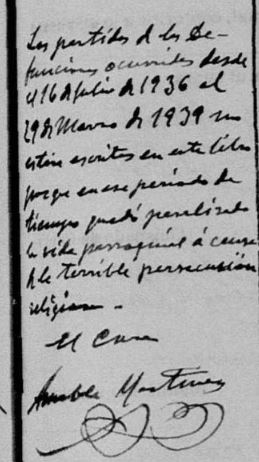 Las partidas de las De-
funciones ocurridas desde
el 16 de Julio de 1936 al
29 de Marzo de 1939 no
están escritas en este libro
porque en ese periodo de
tiempo quedó paralizada
la vida parroquial á causa
de la terrible persecución
religiosa.
El Cura
Martinez